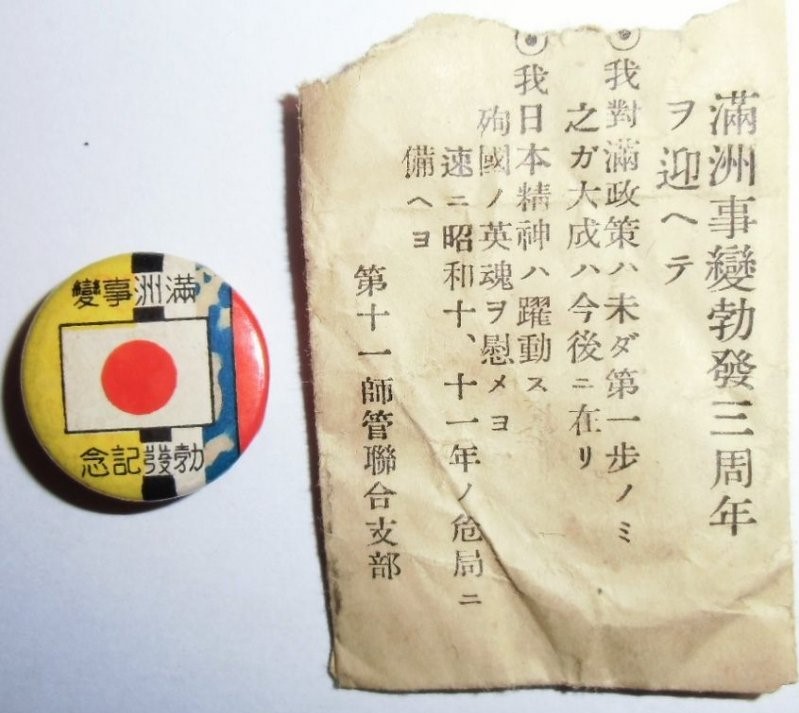 滿洲事變
勃發記念
滿洲事變勃發三周年
ヲ迎ヘテ
◉我對滿政策ハ未ダ第一步ノミ
之ガ大成ハ今後ニ在リ
◉我日本精神ハ躍動ス
殉國ノ英魂ヲ慰メヨ
速ニ昭和十、十一年ノ危局ニ
備ヘヨ
第十一師管聯合支部